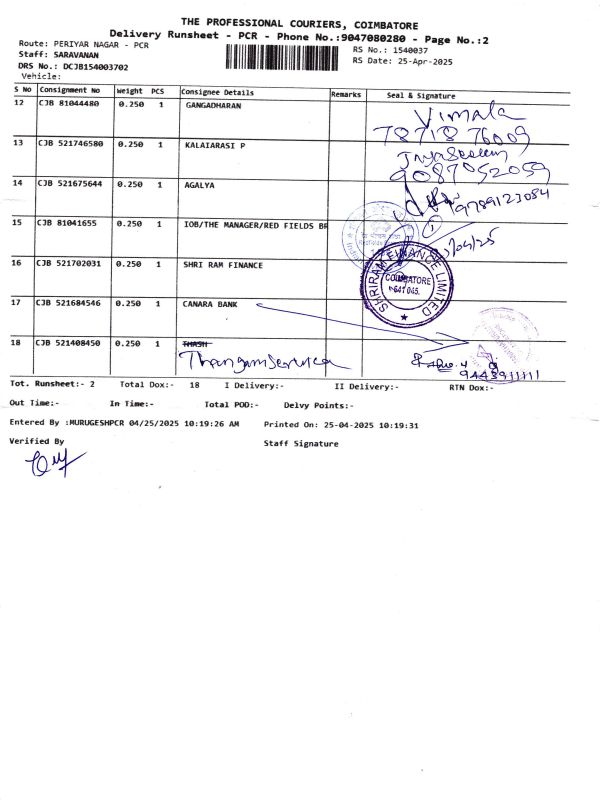 THE PROFESSIONAL COURIERS, COIMBATORE
Delivery Runsheet - PCR - Phone No.:9047080280 - Page No.:2
Route: PERIYAR NAGAR - PCR
RS No.: 1540037
Staff: SARAVANAN
RS Date: 25-Apr-2025
DRS No.: DCJB154003702
Vehicle:
S No Consignment No Weight PCS Consignee Details Remarks Seal & Signature
12 CJB 81044480 0.250 1 GANGADHARAN Vimala
78718 76009
13 CJB 521746580 0.250 1 KALAIARASI P
9087052059
14 CJB 521675644 0.250 1 AGALYA
9789123084
15 CJB 81041655 0.250 1 IOB/THE MANAGER/RED FIELDS BR
16 CJB 521702031 0.250 1 SHRI RAM FINANCE
SHRIRAM FINANCE LIMITED
COIMBATORE
641 045.
17 CJB 521684546 0.250 1 CANARA BANK
18 CJB 521408450 0.250 1 THASH
9443911111
Tot. Runsheet:- 2 Total Dox:- 18 I Delivery:- II Delivery:- RTN Dox:-
Out Time:- In Time:- Total POD:- Delvy Points:-
Entered By :MURUGESHPCR 04/25/2025 10:19:26 AM Printed On: 25-04-2025 10:19:31
Verified By Staff Signature